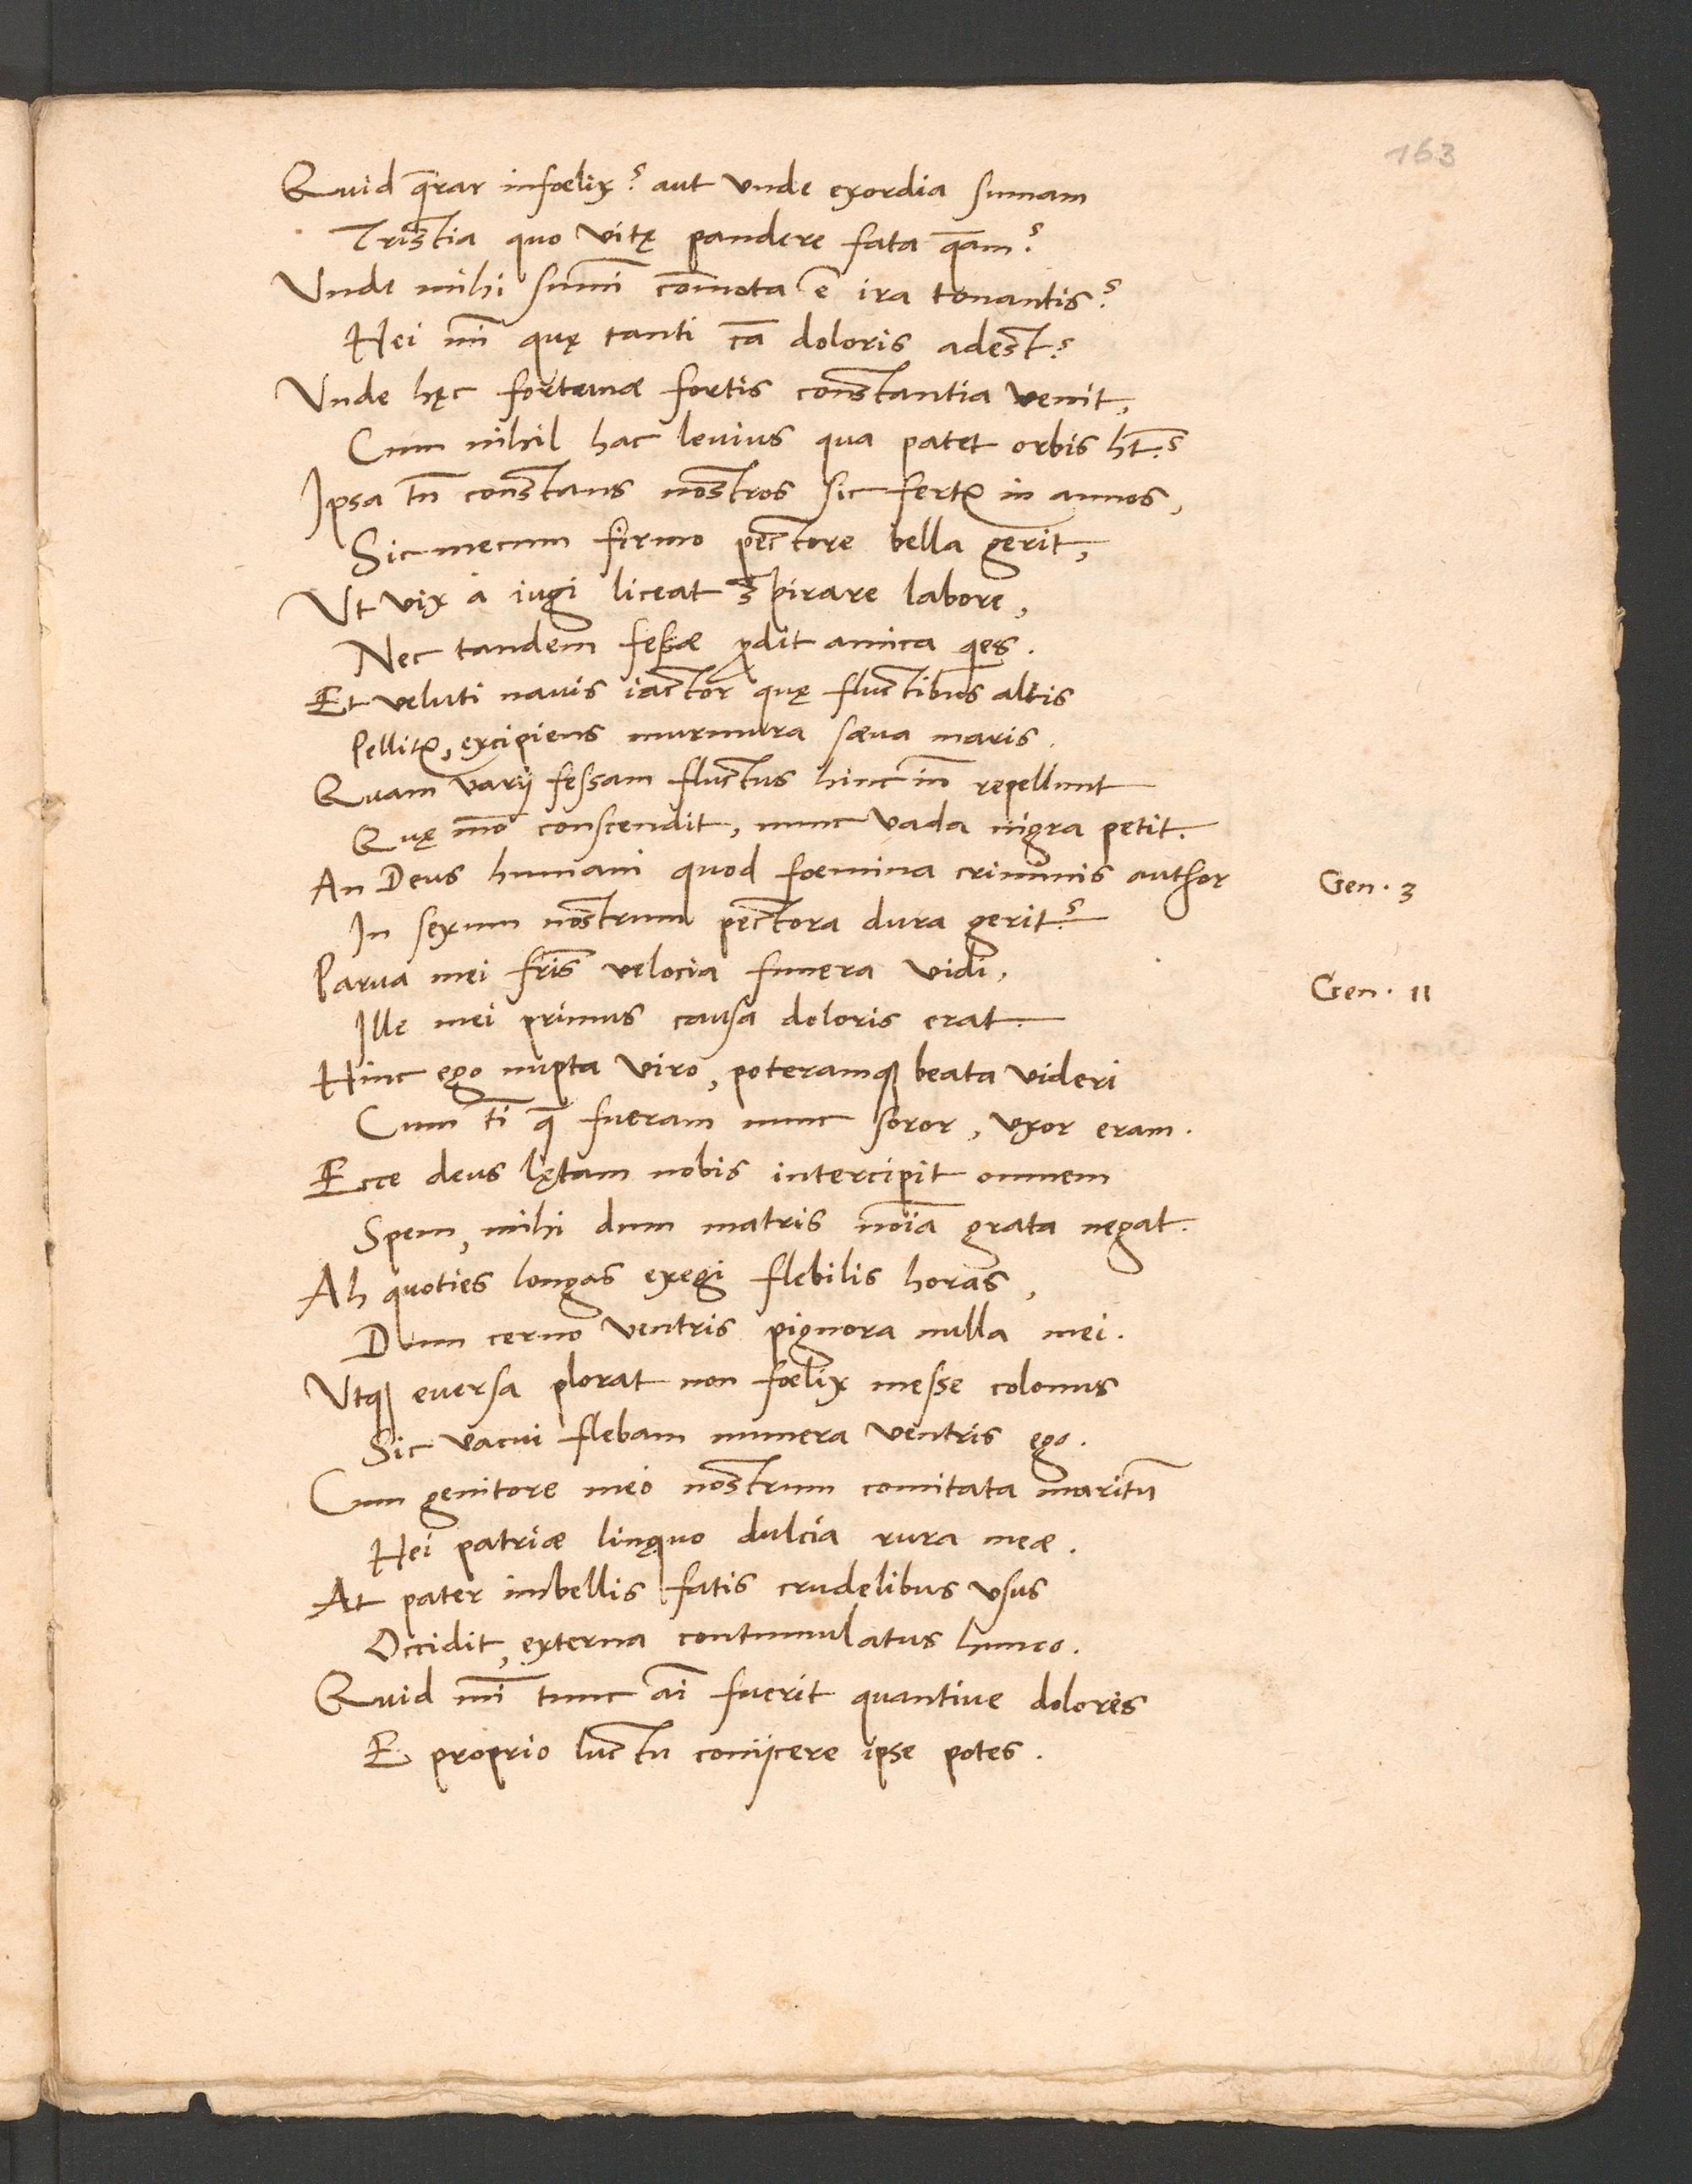 163
Quid q̃rar infœlix? aut unde exordia sumam
Tristia quo vitę pandere fata q̃am?
Unde mihi sum̃i com̃ota ẽ ira tonantis?
Hei m̃i quę tanti cã doloris adest?
Unde hęc fortunæ fortis constantia venit,
Cum nihil hac levius qua patet orbis ht̃?
Ipsa tñ constans nostros sic fertur in annos,
Sic mecum firmo pectore bella gerit,
Ut vix à iugi liceat spirare labore,
Nec tandem fessæ prodit amica qes.
Et veluti navis iactor quę fluctibus altis
Pellitur, excipiens murmura sæva maris.
Quam varij fessam fluctus hinc iñ repellunt
Quę mõ conscendit, nunc vada nigra petit.
An Deus humani quod fœmina criminis author
Gen. 3
In sexum nostrum pectora dura gerit?
Parva mei fris̃ velocia funera vidi,
Gen. 11
Ille mei primus causa doloris erat.
Hinc ego nupta viro, poteramq; beata videri
Cum ti q̃ fueram nunc soror, uxor eram.
Ecce deus lętam nobis intercipit omnem
Spem, mihi dum matris noĩa grata negat.
Ah quoties longas exegi flebilis horas,
Dum cerno ventris pignora nulla mei.
Utq; eversa plorat non fœlix messe colonus
Sic vacui flebam munera ventris ego.
Cum genitore meo nostrum comitata maritũ
Hei patriæ linquo dulcia rura meæ.
At pater imbellis fatis crudelibus usus
Occidit, externa contumulatus humo.
Quid m̃i tunc aĩ fuerit quantive dolores
E proprio luctu coniicere ipse potes.